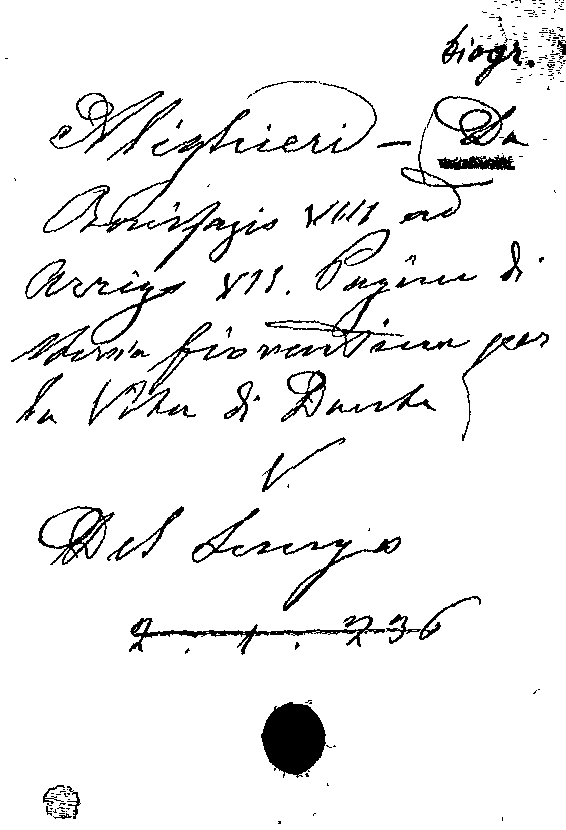 biogr.
Alighieri — Da
Bonifazio VIII ad
Arrigo VII. Pagine di
storia fiorentina per
la Vita di Dante
V.
Del Lungo
2 . 1 . 236